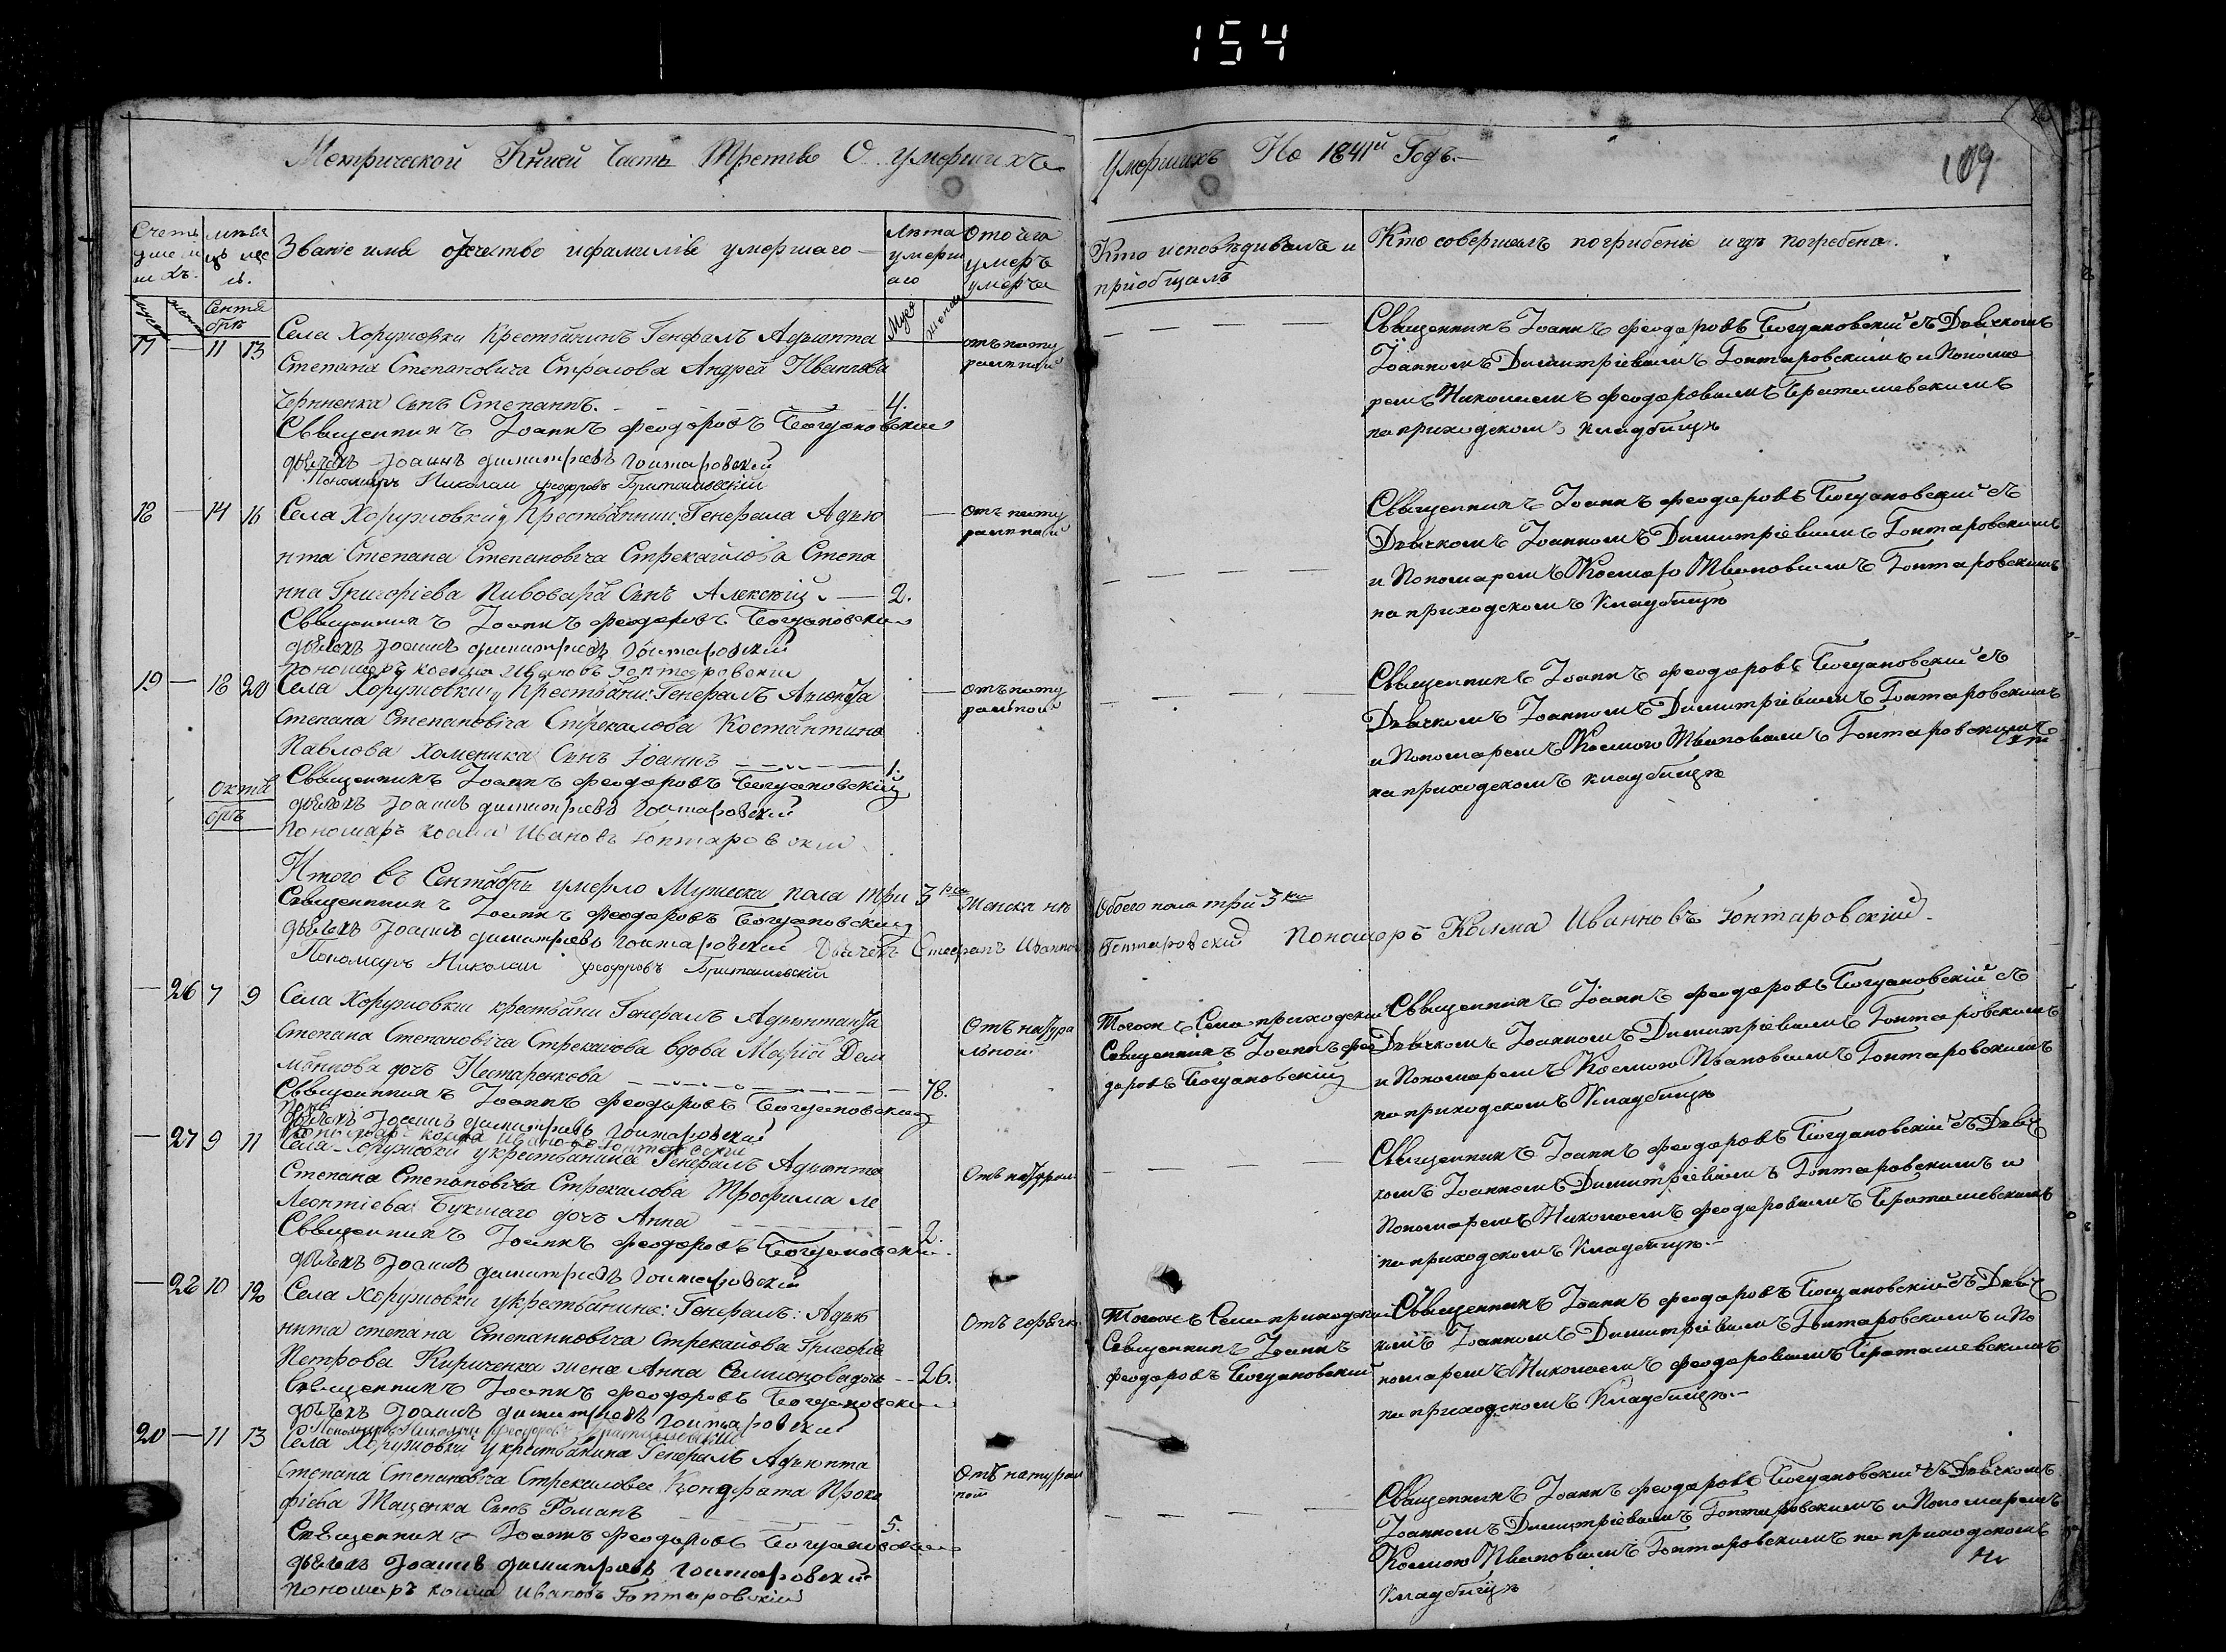 154
Метрической Книги Часть Третья О умершихъ
умершихъ На 1841й Годъ.
109
Счетъ умершихъ.
мѣсяцъ
Званіе имя отчество и фамилія умершаго
Лѣта умершаго
Отъ чего умеръ
Кто исповѣдивалъ и пріобщалъ
Кто совершалъ погребеніе и гдѣ погребены.
Сентябрь
17 — 11 13
Села Хоружовки Крестьянинъ Генералъ Адъюнта
Степана Степановича Стрекалова Андрей Иванова
Сынъ Степанъ. 4.
отъ натуральной
Священникъ Іоаннъ Феодоровъ Богдановскій
дьячекъ Іоаннъ димитріевъ гонтаровскій
Пономарь Николай феодоровъ Бриташевскій
Священникъ Іоаннъ Феодоровъ Богдановскій съ Дьячкомъ
Іоанномъ Димитріевымъ Гонтаровскимъ и Понома
ремъ Николаемъ Феодоровымъ Бриташевскимъ
на приходскомъ кладбищѣ
18 — 14 16
Села Хоружовки у Крестьянин: Генерала Адъю
нта Степана Степановича Стрекалова Степа
нна Григоріева Пивовара Сынъ Алексѣй — 2.
отъ натуральной
Священникъ Іоаннъ Феодоровъ Богдановскій
дьячекъ Іоаннъ димитріевъ гонтаровскій
Пономарь косма Ивановъ Гонтаровскій
Священникъ Іоаннъ Феодоровъ Богдановскій съ
Дьячкомъ Іоанномъ Димитріевымъ Гонтаровскимъ
и Пономаремъ Космою Ивановымъ Гонтаровскимъ
на приходскомъ Кладбищѣ
19 — 18 20
Села Хоружовки у Крестьяни: Генералъ Адъюнта
Степана Степановича Стрекалова Костантина
Павлова Хоменка Сынъ Іоаннъ 1.
отъ натуральной
Священникъ Іоаннъ Феодоровъ Богдановскій
дьячекъ Іоаннъ димитріевъ гонтаровскій
Пономарь косма Ивановъ Гонтаровскій
Священникъ Іоаннъ Феодоровъ Богдановскій съ
Дьячкомъ Іоанномъ Димитріевымъ Гонтаровскимъ
и Пономаремъ Космою Ивановымъ Гонтаровскимъ
на приходскомъ кладбищѣ
Октябрь
Итого въ Сентябрѣ умерло Мужеска пола три 3 Женска нѣ
Обоего пола три 3
Священникъ Іоаннъ Феодоровъ Богдановскій
дьячекъ Іоаннъ димитріевъ гонтаровскій Дьячекъ Стефанъ Иванов Гонтаровскій Пономарь Козма Ивановъ Гонтаровскій.
Пономарь Николай феодоровъ Бриташевскій
— 26 7 9
Села Хоружовки крестьяни Генералъ Адъютанта
Степана Степановича Стрекалова вдова Марія Дем
дочь Нестаренкова 78.
Отъ натуральной
Священникъ Іоаннъ Феодоровъ Богдановскій
дьячекъ Іоаннъ димитріевъ гонтаровскій
Пономарь косма Ивановъ Гонтаровскій
Тогожъ Села приходскій
Священникъ Іоаннъ Фео
доровъ Богдановскій
Священникъ Іоаннъ Феодоровъ Богдановскій съ
Дьячкомъ Іоанномъ Димитріевымъ Гонтаровскимъ
и Пономаремъ Космою Ивановымъ Гонтаровскимъ
на приходскомъ Кладбищѣ
— 27 9 11
Села Хоружовки у крестьянина Генералъ Адъюнта
Степана Степановича Стрекалова Трофима Ле
Леонтіева дочь Анна 2.
Отъ натурал
Священникъ Іоаннъ Феодоровъ Богдановскій
дьячекъ Іоаннъ димитріевъ гонтаровскій
Священникъ Іоаннъ Феодоровъ Богдановскій съ Дьяч
комъ Іоанномъ Димитріевымъ Гонтаровскимъ и
Пономаремъ Николаемъ Феодоровымъ Бриташевскимъ
на приходскомъ Кладбищѣ.
— 28 10 12
Села Хоружовки у крестьянина: Генералъ: Адъю
нта степана Степанновича Стрекалова Григорія
Петрова Кириченка жена Анна Семионова дочь — 26.
Отъ горячк
Священникъ Іоаннъ Феодоровъ Богдановскій
дьячекъ Іоаннъ димитріевъ гонтаровскій
Пономарь Николай феодоровъ Бриташевскій
Тогожъ Села приходскій
Священникъ Іоаннъ
Феодоровъ Богдановскій
Священникъ Іоаннъ Феодоровъ Богдановскій съ Дьяч
комъ Іоанномъ Димитріевымъ Гонтаровскимъ и По
номаремъ Николаемъ Феодоровымъ Бриташевскимъ
на приходскомъ Кладбищѣ.
20 — 11 13
Села Хоружовки у крестьянина Генералъ Адъюнта
Степана Степановича Стрекалова Кондрата Проко
фіева Тащенка Сынъ Романъ 5.
Отъ натуральной
Священникъ Іоаннъ Феодоровъ Богдановскій
дьячекъ Іоаннъ димитріевъ гонтаровскій
Пономарь косма Ивановъ Гонтаровскій
Священникъ Іоаннъ Феодоровъ Богдановскій съ Дьячкомъ
Іоанномъ Димитріевымъ Гонтаровскимъ и Пономаремъ
Космою Ивановымъ Гонтаровскимъ на приходскомъ
Кладбищѣ